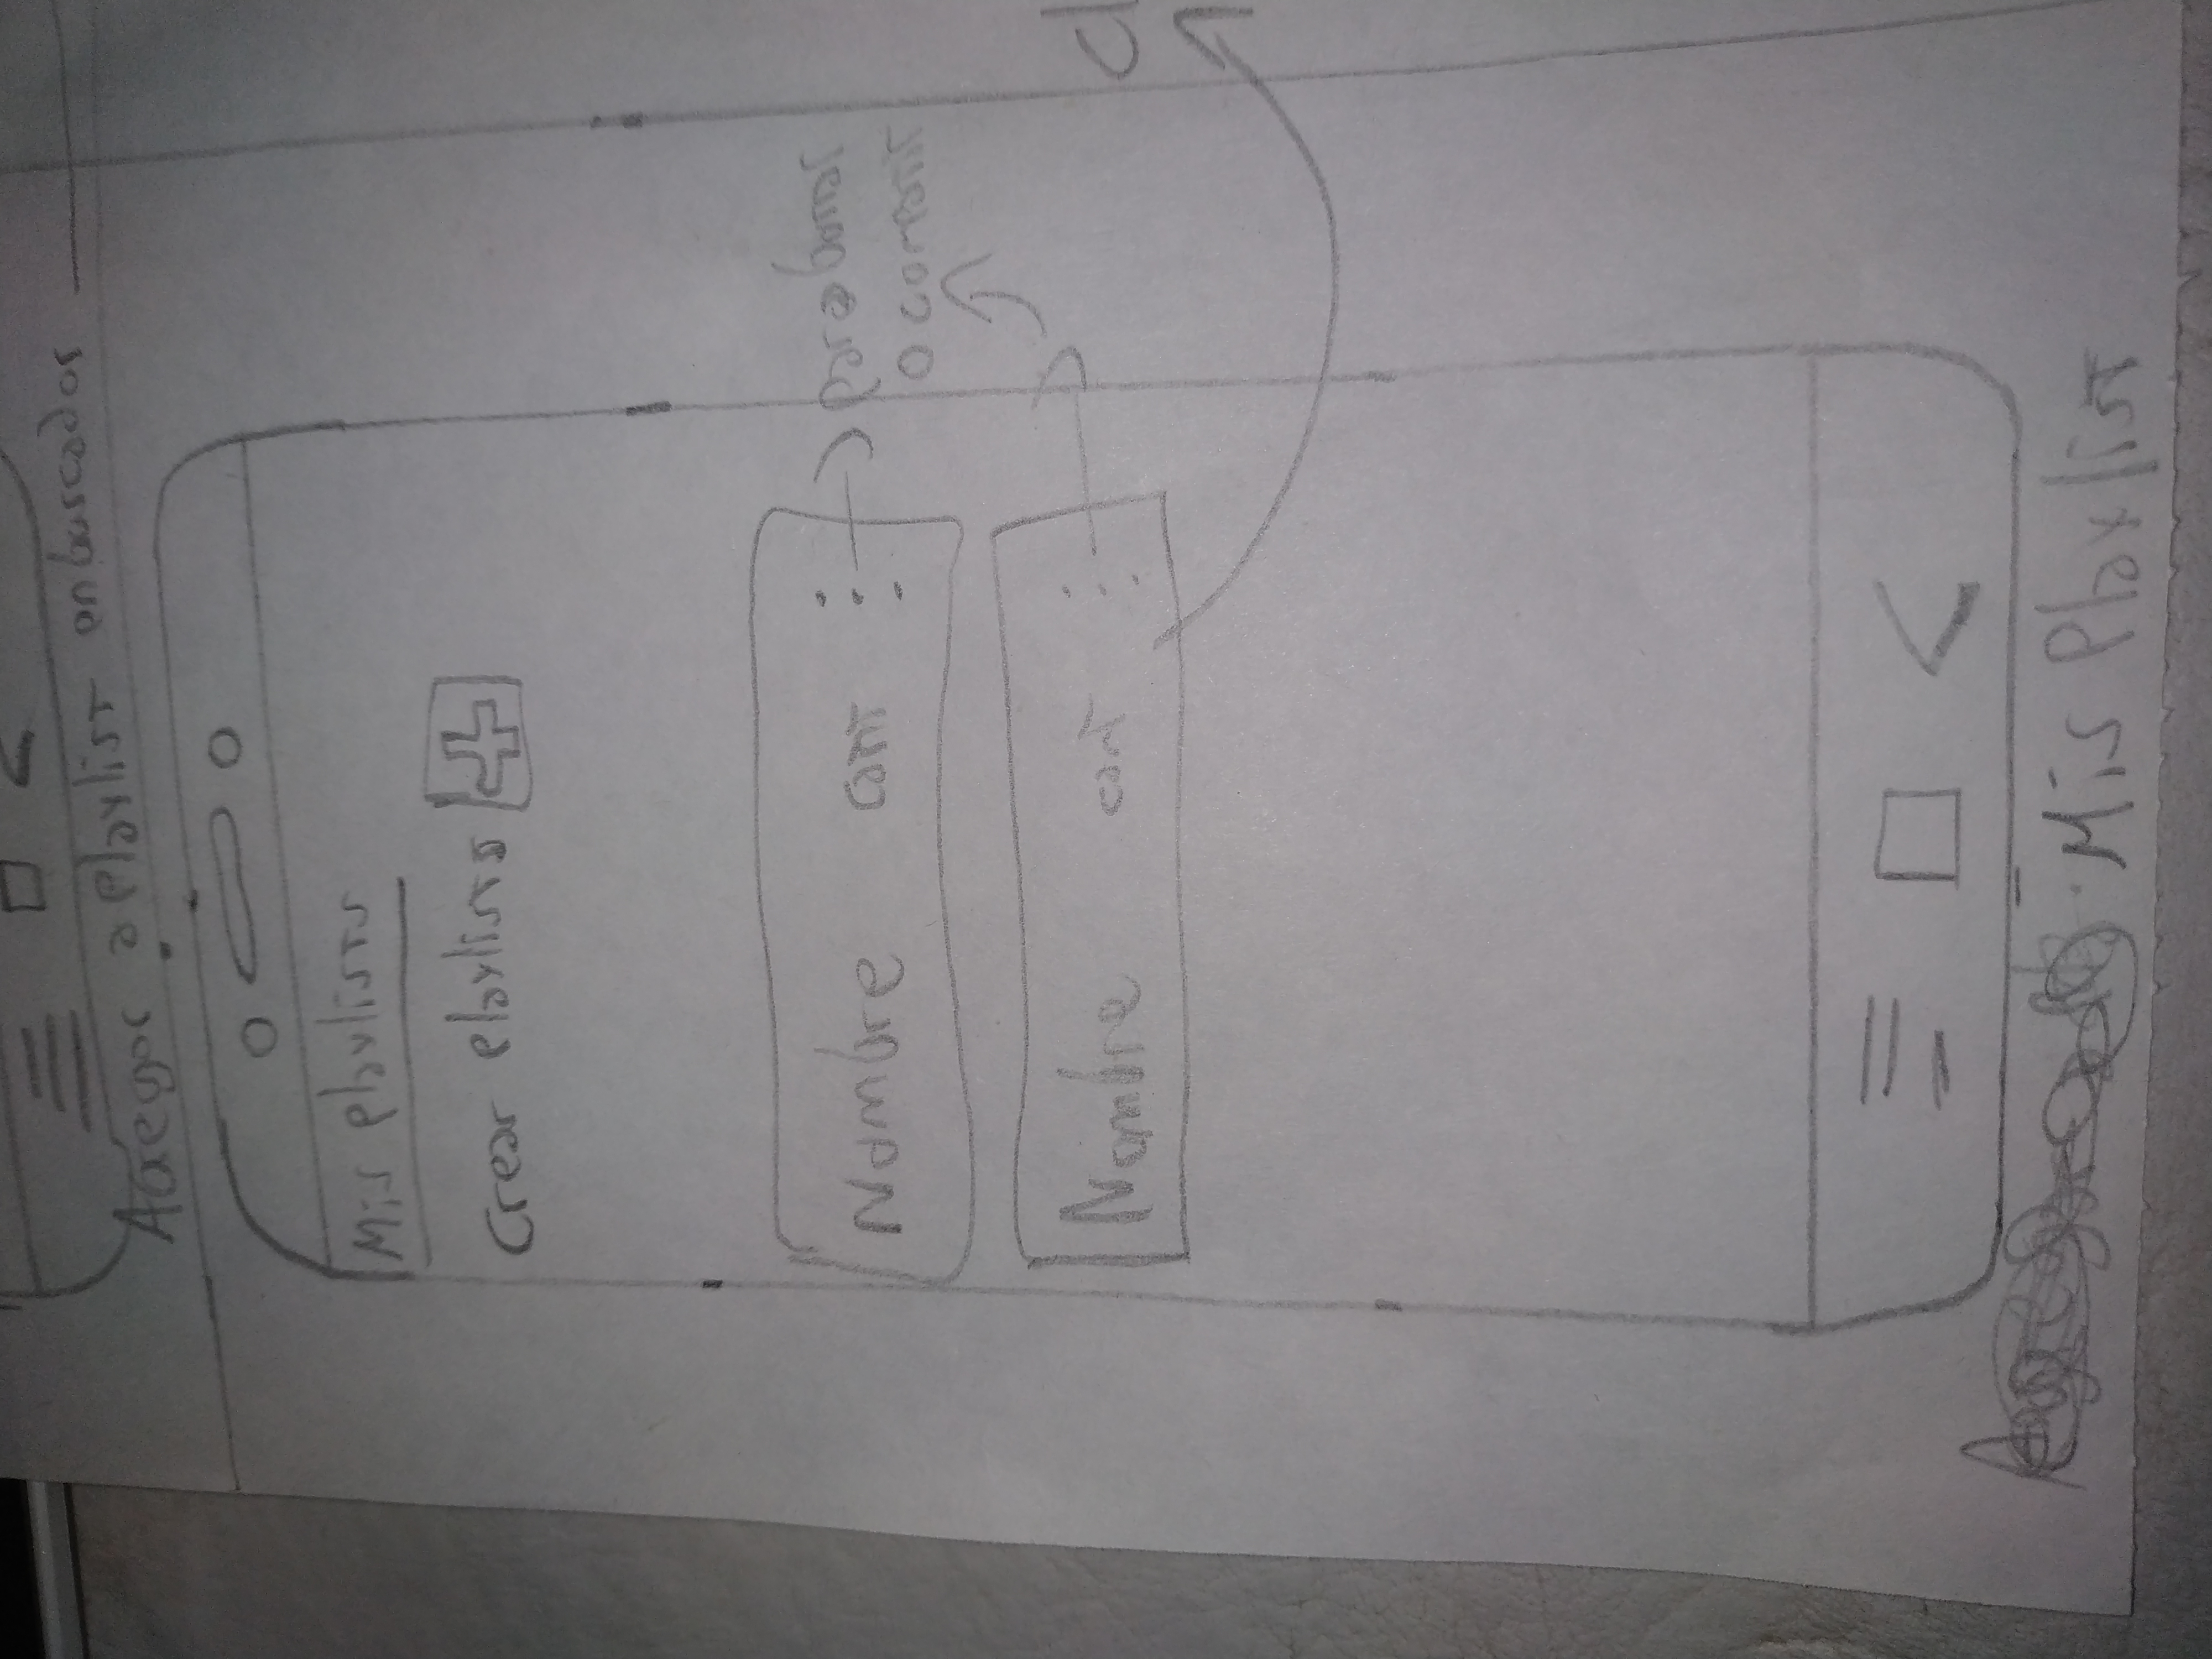 Agregar a Playlist en buscador
Mis Playlists
Crear Playlists
Nombre cant
para borrar
o compartir
Nombre cant
Mis Playlist